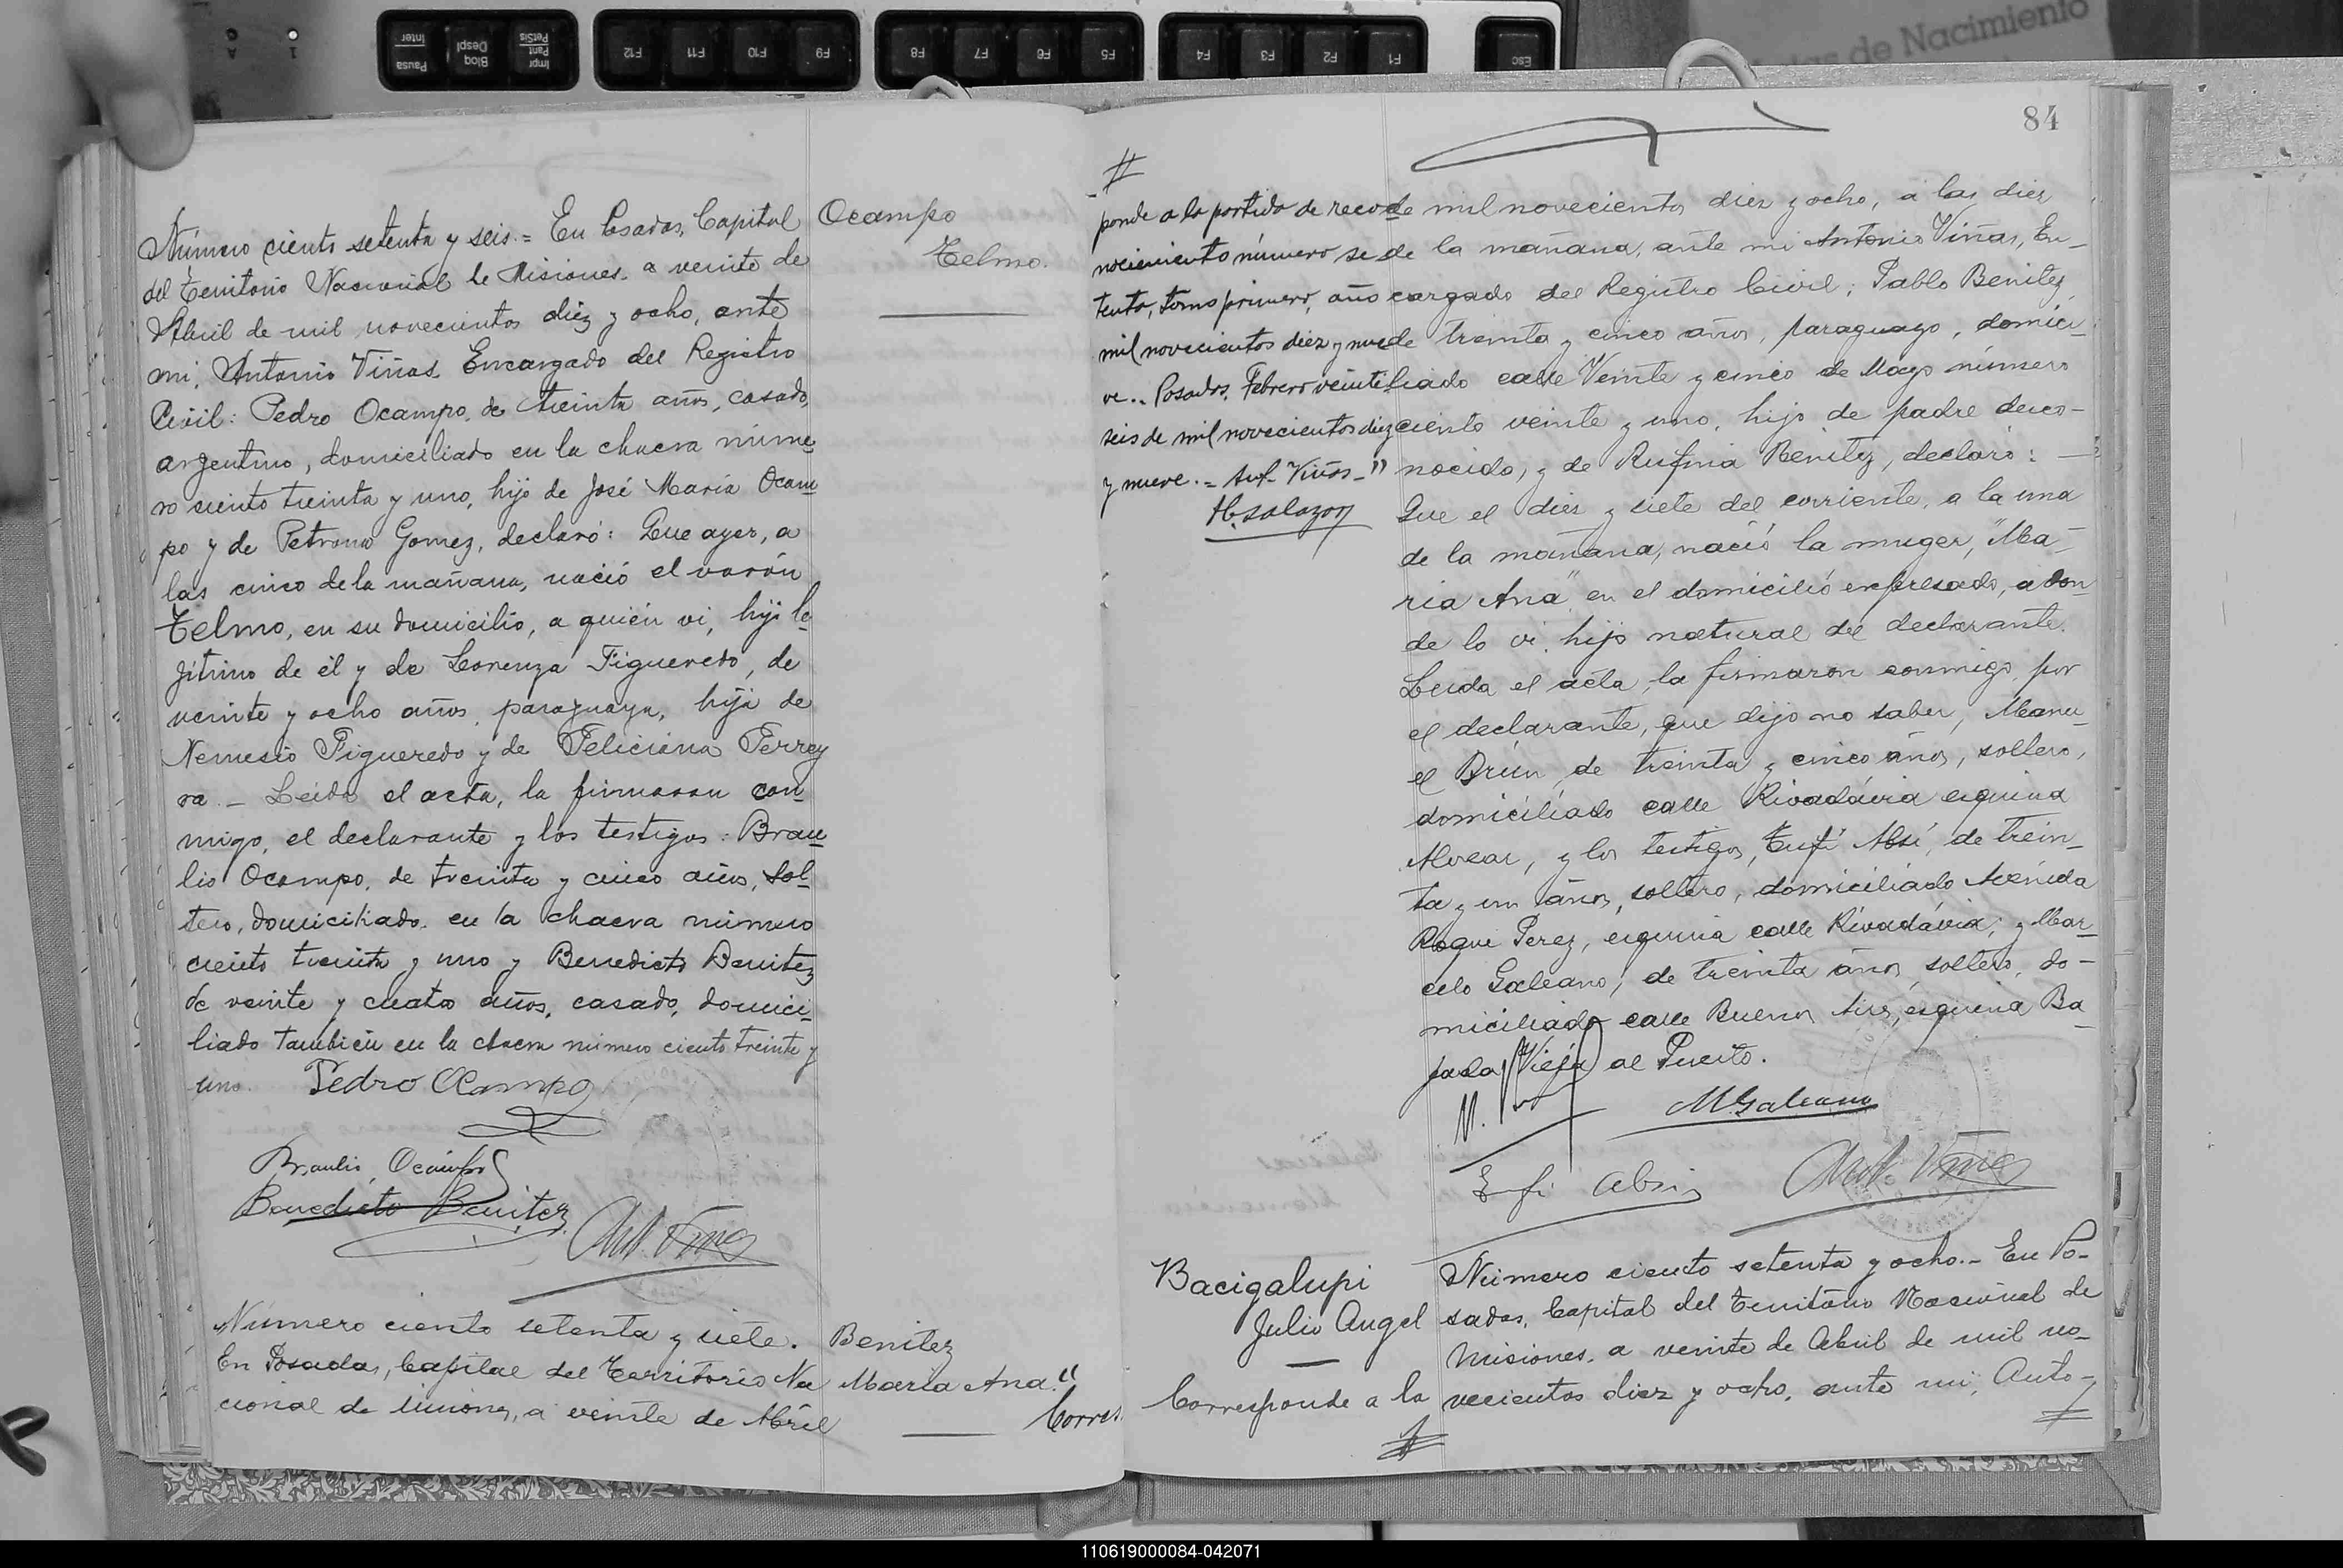 Pausa
Inter
Bloq
Despl
Impr
Pant
PetSis
F12
F11
F10
F9
F8
F7
F6
F5
F4
F3
F2
F1
Esc
de Nacimiento
Ocampo
Telmo.
Número ciento setenta y seis.= En Posadas, Capital
del Territorio Nacional de Misiones, a veinte de
Abril de mil novecientos diez y ocho, ante
mi, Antonio Viñas Encargado del Registro
Civil: Pedro Ocampo, de treinta años, casado,
argentino, domiciliado en la chacra núme
ro ciento treinta y uno, hijo de José María Ocam
po y de Petrona Gomez, declaró: Que ayer, a
las cinco de la mañana, nació el varón
Telmo, en su domicilio, a quién vi, hijo le
jítimo de él y de Lorenza Figueredo, de
veinte y ocho años, paraguaya, hija de
Nemesio Figueredo y de Feliciana Ferrey
ra.- Leída el acta, la firmaron con
migo, el declarante y los testigos: Brau
lio Ocampo, de treinta y cinco años, sol
tero, domiciliado en la chacra número
ciento treinta y uno y Benedicto Benitez
de veinte y cuatro años, casado, domici
liado también en la chacra número ciento treinta y
uno. Pedro Ocampo
Braulio Ocampo
Benedicto Benitez
Ant. Viñas
Benitez
María Ana."
Corres
Número ciento setenta y siete.
En Posadas, Capital del Territorio Na
cional de Misiones, a veinte de Abril
84
#
ponde a la partida de reco
nocimiento número se
tenta, tomo primero, año
mil novecientos diez y nue
ve.. Posadas, Febrero veinti
seis de mil novecientos diez
y nueve.= Ant. Viñas-"
H. Salazar
de mil novecientos diez y ocho, a las diez
de la mañana, ante mi Antonio Viñas, En-
cargado del Registro Civil; Pablo Benitez,
de treinta y cinco años, paraguayo, domici-
liado calle Veinte y cinco de Mayo número
ciento veinte y uno, hijo de padre desco-
nocido, y de Rufina Benitez, declaró: -
Que el diez y siete del corriente, a la una
de la mañana, nació la muger, "Ma-
ria Ana" en el domicilio expresado, a don
de lo vi, hijo natural del declarante.
Leida el acta, la firmaron conmigo, por
el declarante, que dijo no saber, Manu-
el Brún, de treinta y cinco años, soltero,
domiciliado calle Rivadávia esquina
Alvear, y los testigos, Eufi Absi, de trein-
ta y un años, soltero, domiciliado Avenida
Roque Perez, esquina calle Rivadávia; y Mar-
celo Galeano, de treinta años, soltero, do-
miciliado calle Buenos Aires, esquina Ba
jada Vieja al Puerto.
M. Galeano
Eufi Absi
Ant. Viñas
Bacigalupi
Julio Angel
Corresponde a la
#
Número ciento setenta y ocho.- En Po-
sadas, Capital del Territorio Nacional de
Misiones, a veinte de Abril de mil no-
vecientos diez y ocho, ante mi, Anto-
110619000084-042071